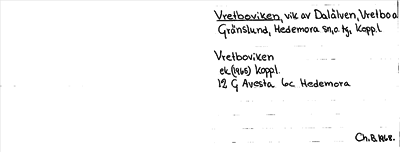 Vretboviken, vik av Dalälven, Vretbo a
Gränslund, Hedemora sn, o. tg, Kopp. l.
Vretboviken
ek. (1965) Koppl.
12 G Avesta 6c Hedemora
Ch.B. 1968.